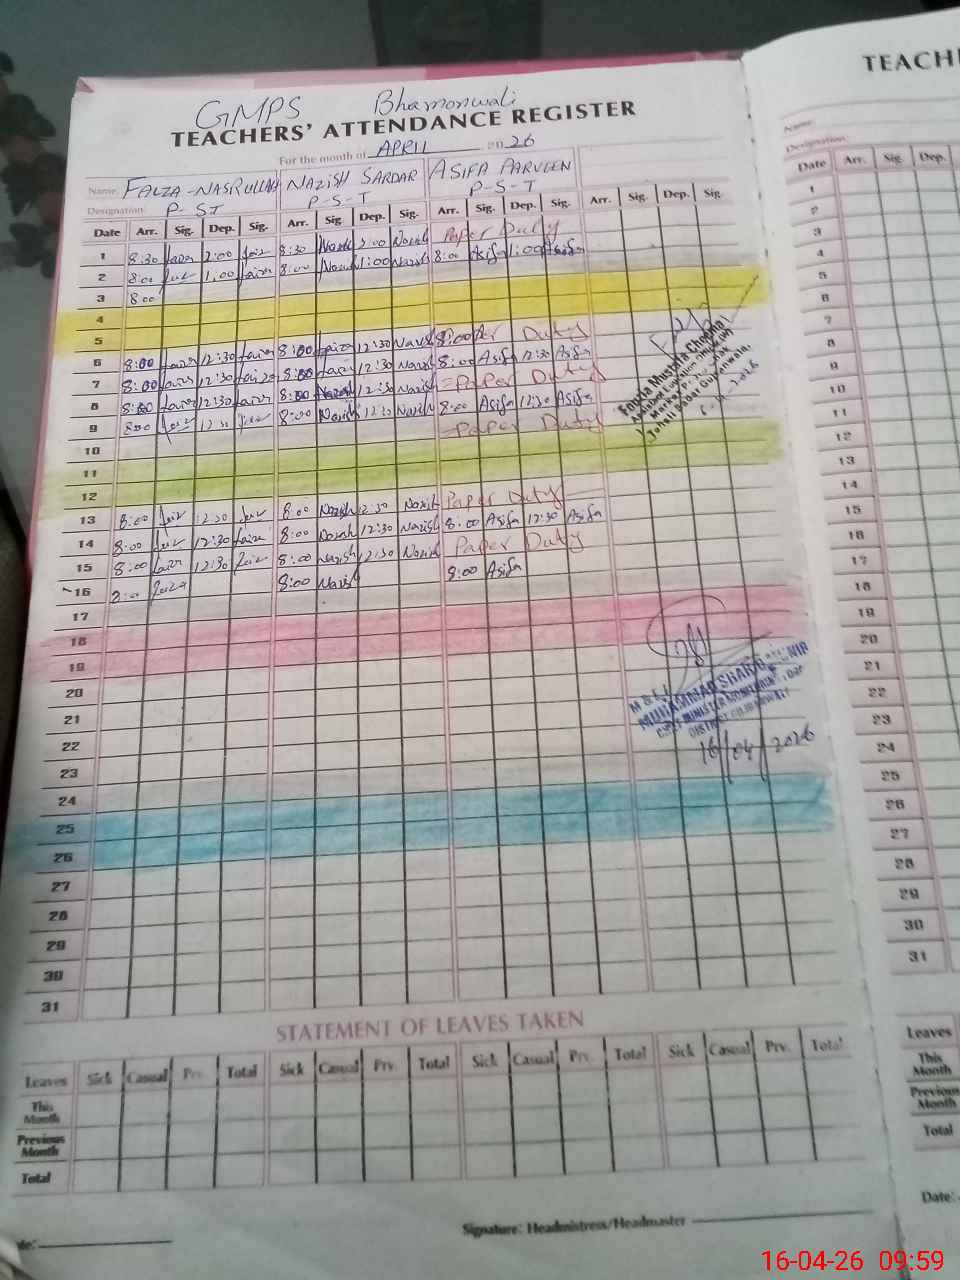 GMPS Bhamonwali
TEACHERS' ATTENDANCE REGISTER
For the month of APRIL 2026
Name: FAIZA-NASRULLAH NAZISH SARDAR ASIFA PARVEEN
Designation: P-ST P-S-T P-S-T
Date Arr. Sig. Dep. Sig. Arr. Sig. Dep. Sig. Arr. Sig. Dep. Sig. Arr. Sig. Dep. Sig.
1 8:30 2:00 8:30 Nazish 2:00 Nazish Paper Duty
2 8:00 1:00 8:00 Nazish 1:00 Nazish 8:00 Asifa 1:00 Asifa
3 8:00
4
5
6 8:00 12:30 8:00 12:30 Nazish Duty
7 8:00 12:30 8:00 12:30 Nazish 8:00 Asifa 12:30 Asifa
8 8:00 12:30 8:00 Nazish 12:30 Nazish Paper Duty
9 8:00 12:30 8:00 Nazish 12:30 Nazish 8:00 Asifa 12:30 Asifa
10 Paper Duty
11
12
13 8:00 12:30 8:00 Nazish 12:30 Nazish Paper Duty
14 8:00 12:30 8:00 Nazish 12:30 Nazish 8:00 Asifa 12:30 Asifa
15 8:00 12:30 8:00 Nazish 12:30 Nazish Paper Duty
16 8:00 8:00 Nazish 8:00 Asifa
17
18
19
20
21
22
23
24
25
26
27
28
29
30
31
Fouzia Mustafa Cheema
Assistant Education Officer (W)
Markaz
M & E
MUHAMMAD SHARIF
CHIEF MINISTER MONITORING
DISTRICT GUJRANWALA
16/04/2026
STATEMENT OF LEAVES TAKEN
Leaves Sick Casual Prv. Total Sick Casual Prv. Total Sick Casual Prv. Total Sick Casual Prv. Total
This Month
Previous Month
Total
Signature: Headmistress/Headmaster
TEACH
Name:
Designation:
Date Arr. Sig. Dep.
1
2
3
4
5
6
7
8
9
10
11
12
13
14
15
16
17
18
19
20
21
22
23
24
25
26
27
28
29
30
31
Leaves
This Month
Previous Month
Total
Date:
16-04-26 09:59